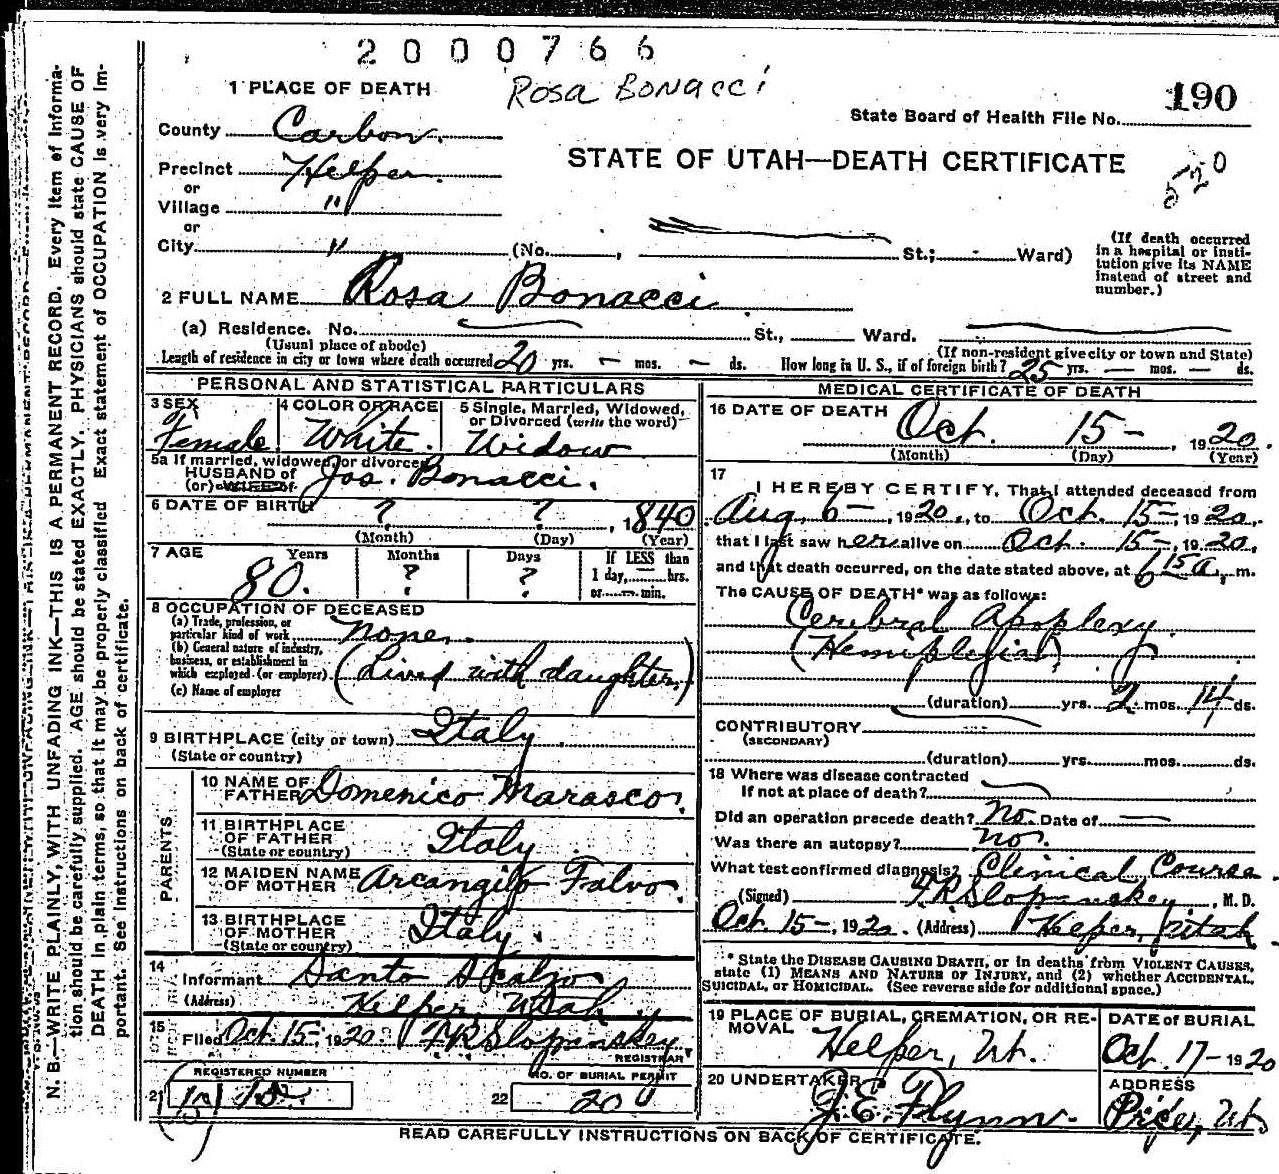 2000766
Rosa Bonacci
190
State Board of Health File No.
STATE OF UTAH—DEATH CERTIFICATE
520
1 PLACE OF DEATH
County Carbon.
Precinct Helper.
or
Village "
or
City " (No. , St.; Ward)
(If death occurred
in a hospital or insti-
tution give its NAME
instead of street and
number.)
2 FULL NAME Rosa Bonacci
(a) Residence. No. St., Ward.
(Usual place of abode)
(If non-resident give city or town and State)
Length of residence in city or town where death occurred 20 yrs. — mos. — ds. How long in U. S., if of foreign birth? 25 yrs. — mos. — ds.
PERSONAL AND STATISTICAL PARTICULARS
3 SEX
Female
4 COLOR OR RACE
White.
5 Single, Married, Widowed,
or Divorced (write the word)
Widow
5a If married, widowed, or divorced
HUSBAND of
(or) WIFE of Jos. Bonacci.
6 DATE OF BIRTH ? ? , 1840
(Month) (Day) (Year)
7 AGE Years Months Days
80. ? ?
If LESS than
1 day, hrs.
or min.
8 OCCUPATION OF DECEASED
(a) Trade, profession, or
particular kind of work None.
(b) General nature of industry,
business, or establishment in
which employed (or employer) (Lived with daughter.)
(c) Name of employer
9 BIRTHPLACE (city or town) Italy.
(State or country)
PARENTS
10 NAME OF
FATHER Domenico Marasco.
11 BIRTHPLACE
OF FATHER
(State or country) Italy
12 MAIDEN NAME
OF MOTHER Arcangilo Falvo.
13 BIRTHPLACE
OF MOTHER
(State or country) Italy.
14
Informant Santo Scalzo
(Address) Helper, Utah
15
Filed Oct. 15- 1920. F R Slopanskey
REGISTRAR
REGISTERED NUMBER
21
NO. OF BURIAL PERMIT
22 20
MEDICAL CERTIFICATE OF DEATH
16 DATE OF DEATH Oct. 15- , 1920.
(Month) (Day) (Year)
17
I HEREBY CERTIFY, That I attended deceased from
Aug. 6- , 1920., to Oct. 15-, 1920.
that I last saw her alive on Oct. 15-, 1920,
and that death occurred, on the date stated above, at 6 15 a. m.
The CAUSE OF DEATH* was as follows:
Cerebral Apoplexy.
(Hemiplegia)
(duration) yrs. 2 mos. 14 ds.
CONTRIBUTORY
(SECONDARY)
(duration) yrs. mos. ds.
18 Where was disease contracted
if not at place of death?
Did an operation precede death? No. Date of —
Was there an autopsy? No.
What test confirmed diagnosis? Clinical Course.
(Signed) F R Slopanskey, M. D.
Oct. 15-, 1920. (Address) Helper, Utah.
* State the DISEASE CAUSING DEATH, or in deaths from VIOLENT CAUSES,
state (1) MEANS AND NATURE OF INJURY, and (2) whether ACCIDENTAL,
SUICIDAL, or HOMICIDAL. (See reverse side for additional space.)
19 PLACE OF BURIAL, CREMATION, OR RE-
MOVAL
Helper, Ut.
DATE of BURIAL
Oct. 17- 1920
20 UNDERTAKER
J. E. Flynn.
ADDRESS
Price, Ut.
READ CAREFULLY INSTRUCTIONS ON BACK OF CERTIFICATE.
N. B.—WRITE PLAINLY, WITH UNFADING INK—THIS IS A PERMANENT RECORD. Every item of informa-
tion should be carefully supplied. AGE should be stated EXACTLY. PHYSICIANS should state CAUSE OF
DEATH in plain terms, so that it may be properly classified. Exact statement of OCCUPATION is very im-
portant. See instructions on back of certificate.